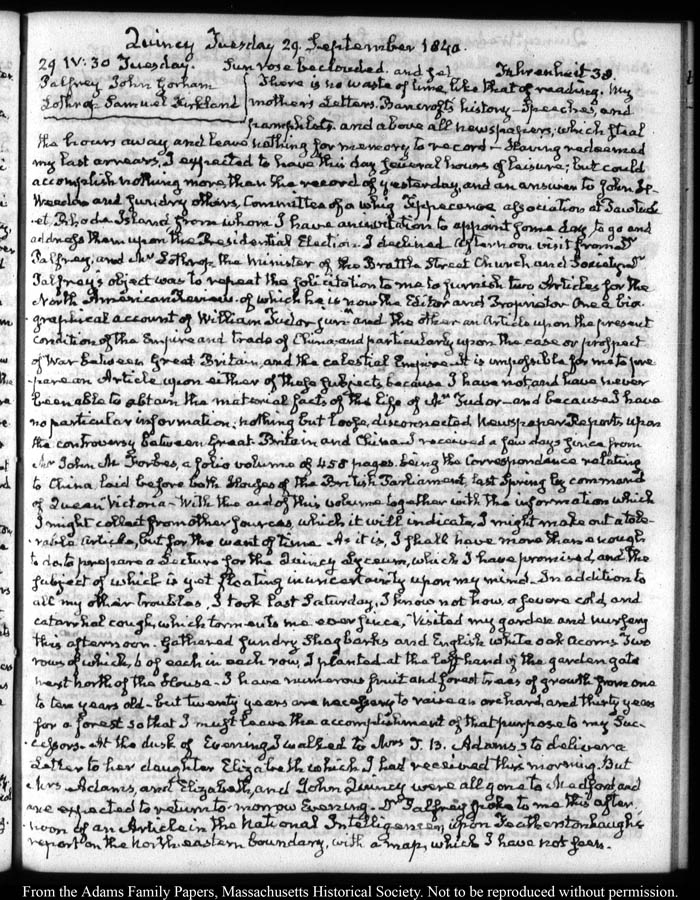 Quincy Tuesday 29. September 1840.
29 IV:30 Tuesday. Sun rose beclouded. and set Fahrenheit 38.
Palfrey John Gorham
Lothrop Samuel Kirkland
There is no waste of time like that of reading. My
mother's Letters. Bancroft's history—Speeches, and
pamphlets and above all newspapers, which steal
the hours away and leave nothing for memory to record—Having redeemed
my last arrears, I expected to have this day several hours of leisure; but could
accomplish nothing more than the record of yesterday, and an answer to John H.
Weeden and sundry others, Committee of a whig Tippecanoe association at Pawtuck-
-et Rhode Island from whom I have an invitation to appoint some day to go and
address them upon the Presidential Election. I declined. Afternoon visit from Dr
Palfrey, and Mr Lothrop the Minister of the Brattle Street Church and Society. Dr
Palfrey's object was to repeat the solicitation to me to furnish two Articles for the
North American Review. of which he is now the Editor and Proprietor One a bio-
graphical account of William Tudor junr and the other an Article upon the present
condition of the Empire and trade of China, and particularly upon the case or prospect
of War between Great Britain, and the celestial Empire. It is impossible for me to pre-
-pare an Article upon either of these subjects because I have not, and have never
been able to obtain the material facts of the life of Mr Tudor—and because I have
no particular information; nothing but loose, disconnected Newspaper Reports upon
the controversy between Great Britain and China. I received a few days since from
Mr John M. Forbes, a folio volume of 458 pages. being the Correspondence relating
to China laid before both Houses of the British Parliament last Spring by command
of Queen Victoria—With the aid of this volume together with the information which
I might collect from other sources, which it will indicate, I might make out a tole-
-rable Article, but for the want of time. As it is, I shall have more than enough
to do to prepare a Lecture for the Quincy Lyceum, which I have promised, and the
subject of which is yet floating in uncertainty upon my mind. In addition to
all my other troubles, I took last Saturday, I know not how, a severe cold, and
catarrhal cough, which torments me ever since. Visited my garden and nursery
this afternoon. Gathered sundry Shagbarks and English white oak Acorns Two
rows of which, 6 of each in each row, I planted at the left hand of the garden gate
next north of the House—I have numerous fruit and forest trees of growth from one
to ten years old—but twenty years are necessary to raise an orchard, and thirty years
for a forest so that I must leave the accomplishment of that purpose to my Suc-
-cessors. At the dusk of Evening, I walked to Mrs T. B. Adams's to deliver a
Letter to her daughter Elizabeth which I had received this morning. But
Mrs Adams, and Elizabeth, and John Quincy were all gone to Medford, and
are expected to return to-morrow Evening. Dr Palfrey spoke to me this after-
-noon of an Article in the National Intelligencer, upon Featherstonhaugh's
report on the north-eastern boundary, with a map, which I have not seen.
From the Adams Family Papers, Massachusetts Historical Society. Not to be reproduced without permission.